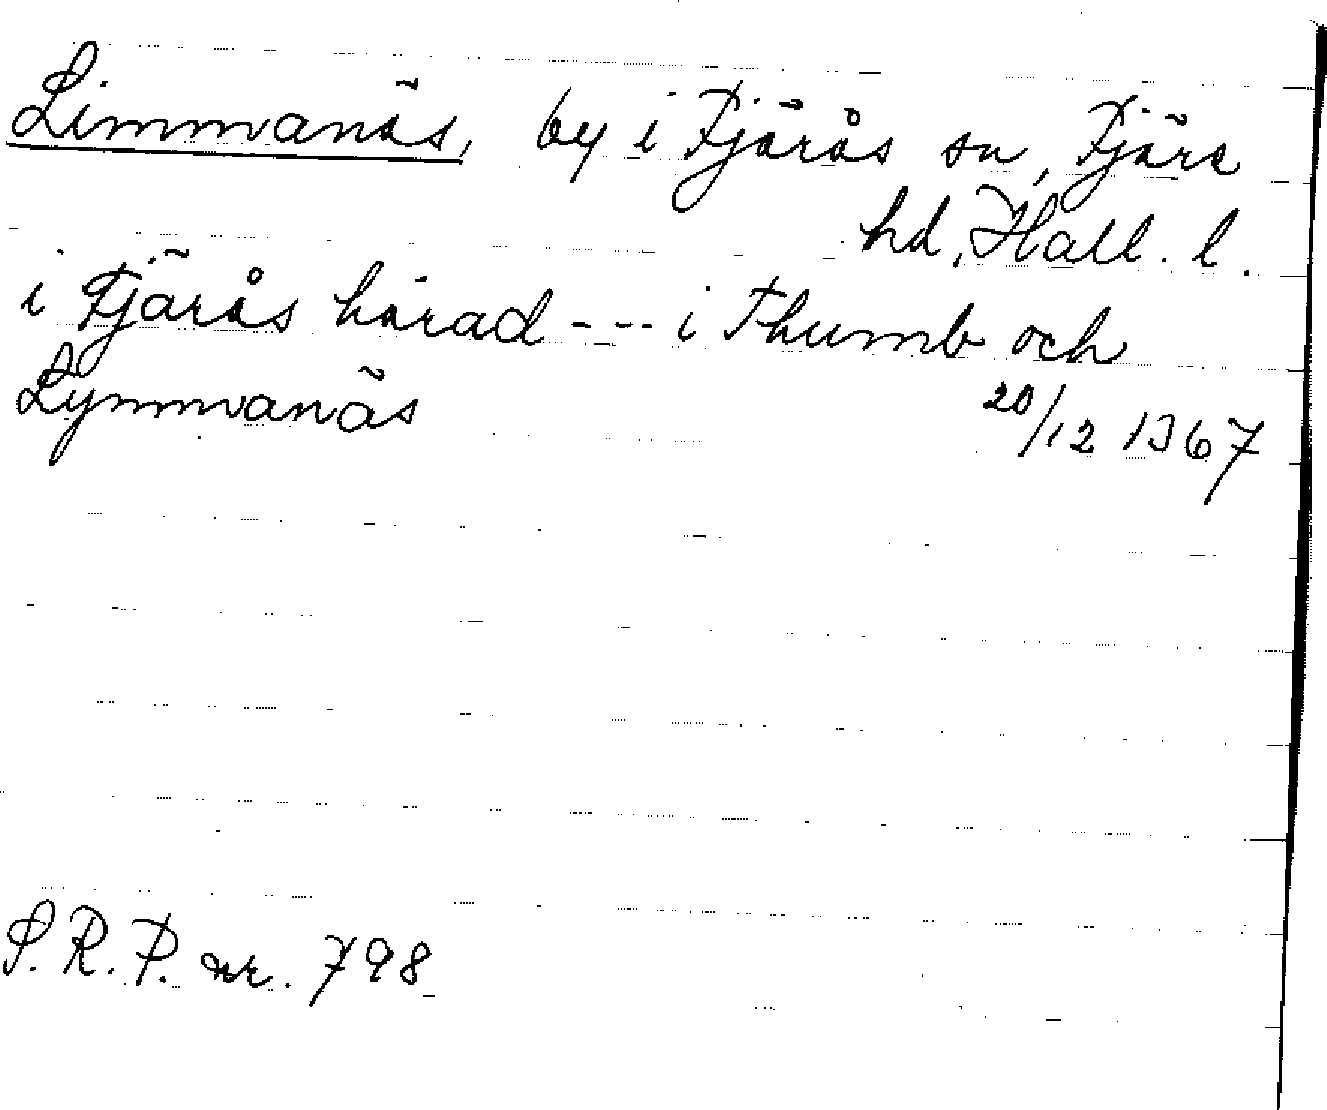 Limmanäs, by i Fjärås sn, Fjäre
hd, Hall. l.
i Fjärås härad --- i Thumb och
Lymmanäs 20/12 1367
S.R.P. nr. 798